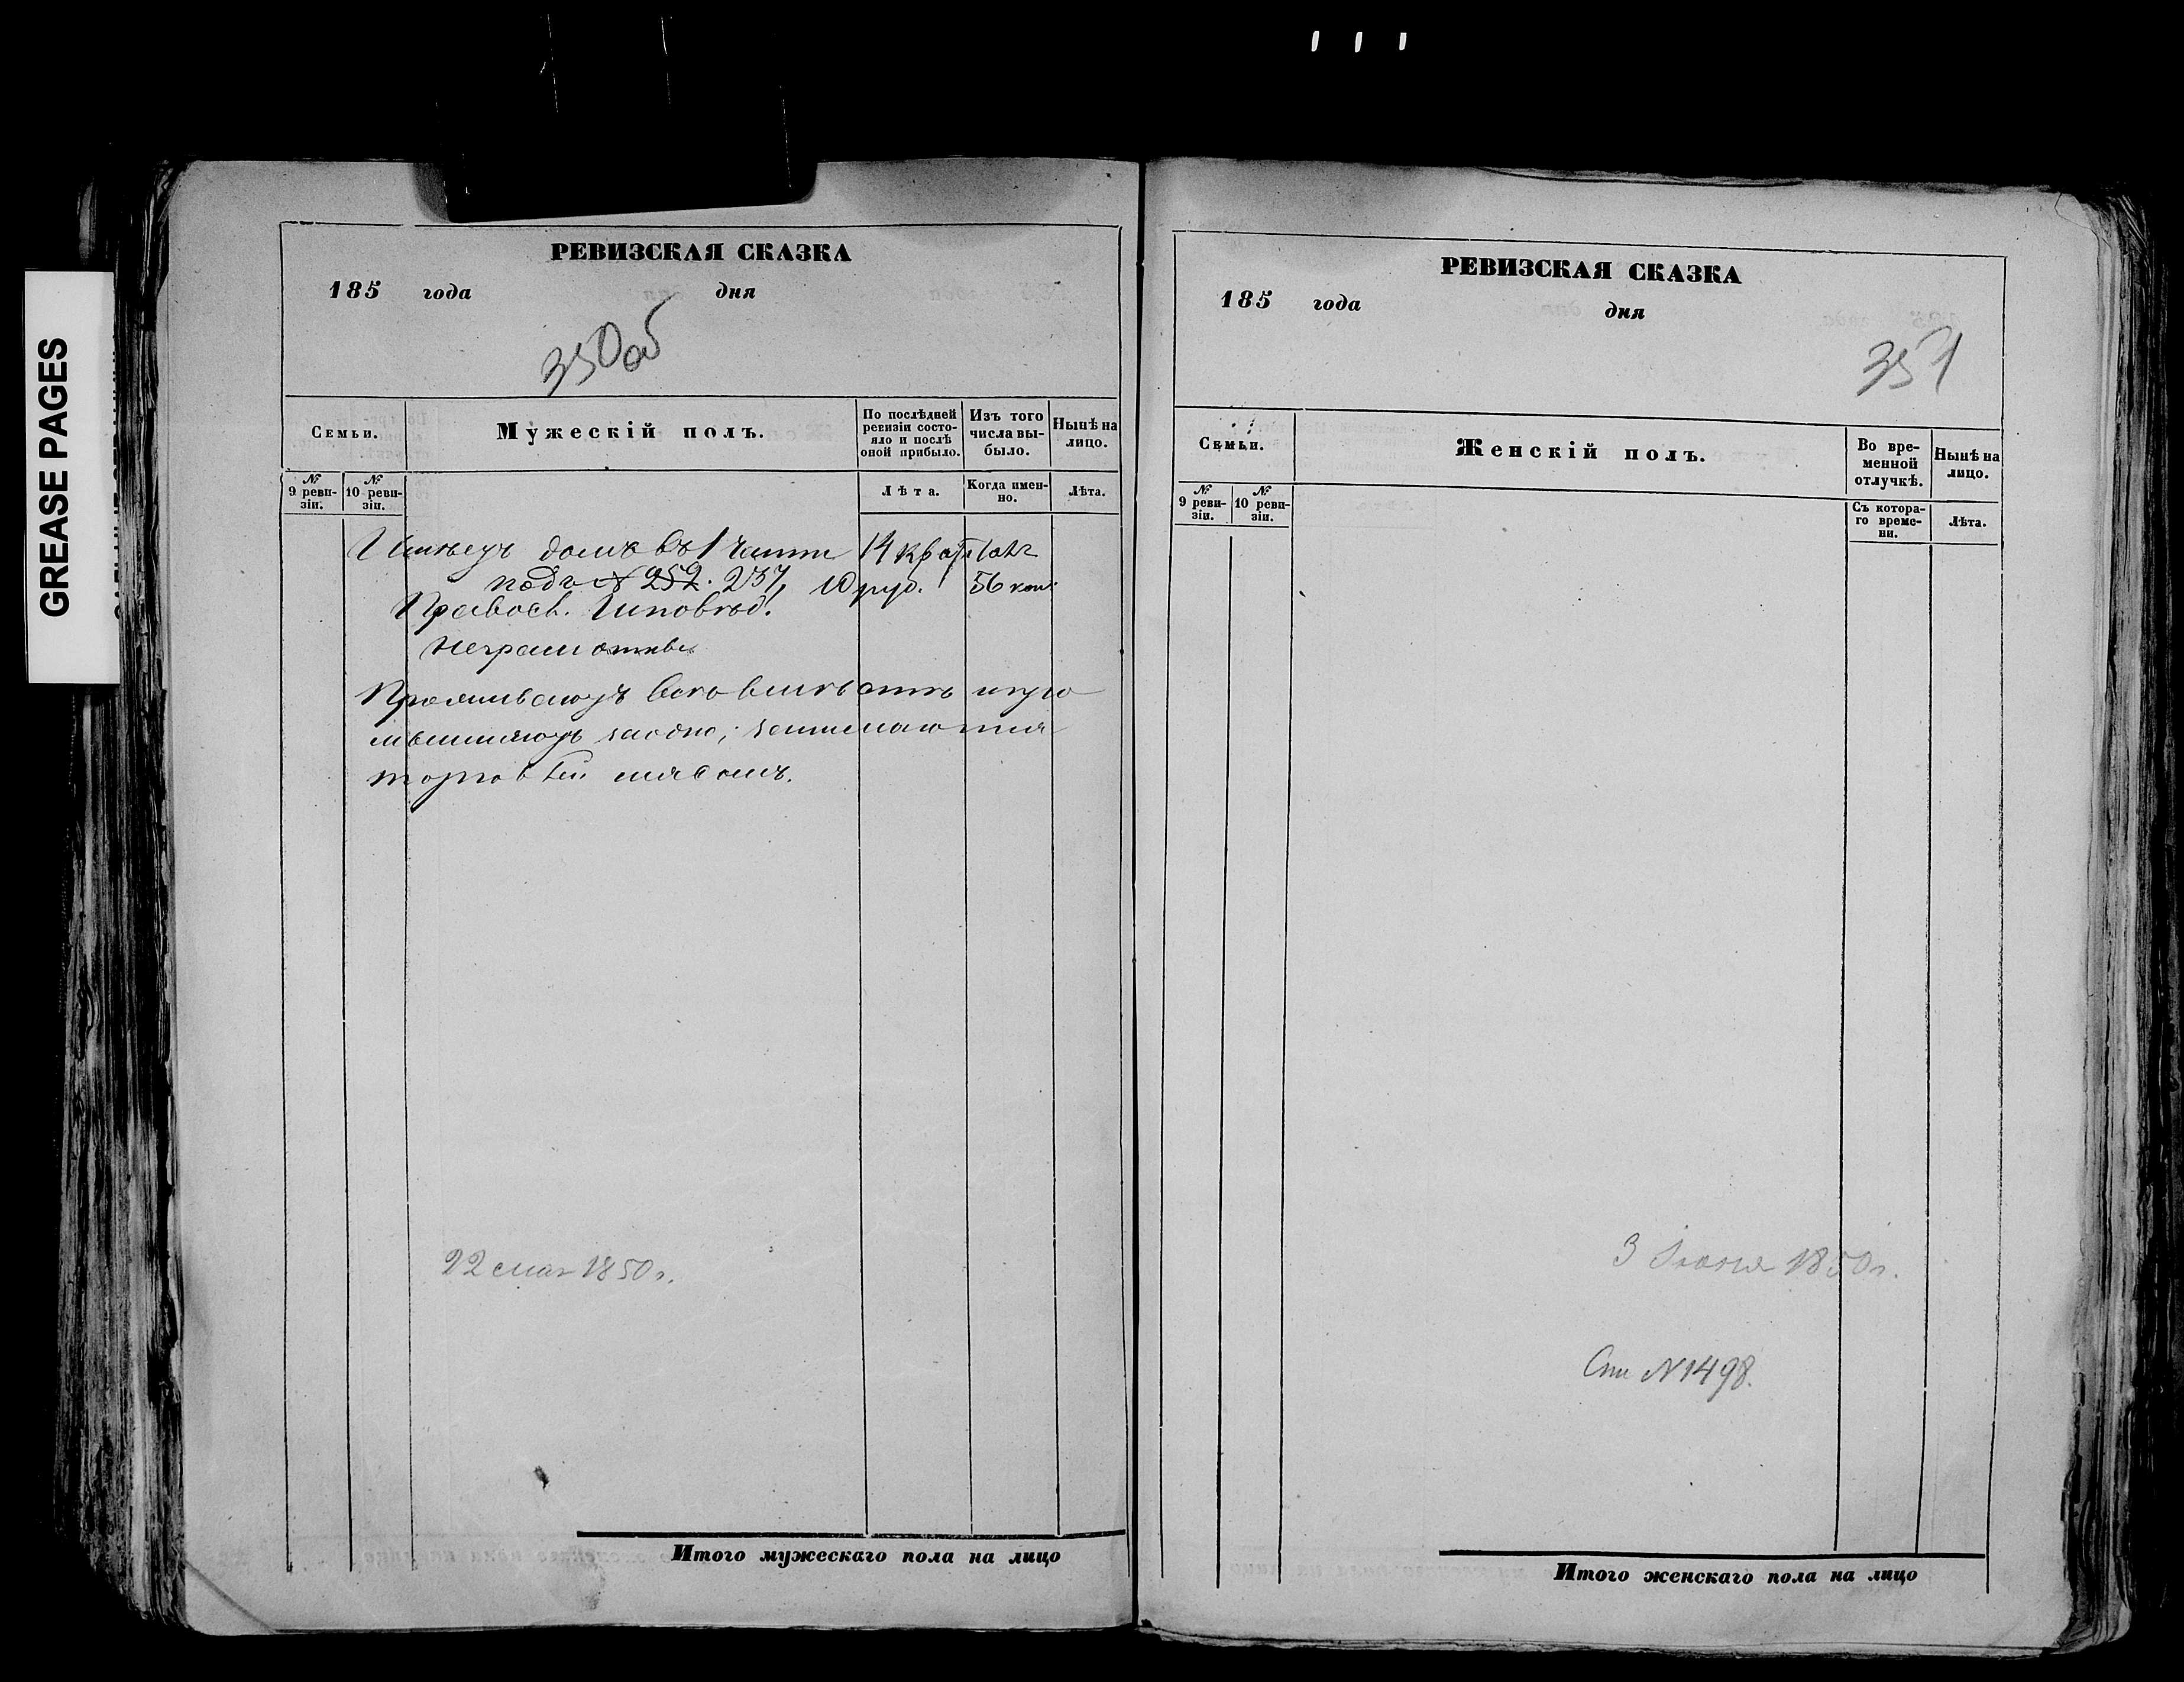 GREASE PAGES
РЕВИЗСКАЯ СКАЗКА
185 года дня
350об
Семьи. Мужескій полъ. По послѣдней ревизіи состояло и послѣ оной прибыло. Изъ того числа выбыло. Нынѣ на лицо.
№ 9 ревизіи. № 10 ревизіи. Лѣта. Когда именно. Лѣта.
Имѣетъ домъ въ 1 части 14 кварталѣ
подъ № 252. 237, 10 руб. 56 коп.
Правосл. Исповѣд.
неграмотны
Проживаютъ
заодно; занимаются
торговлей мясомъ.
22 мая 1850 г.
Итого мужескаго пола на лицо
РЕВИЗСКАЯ СКАЗКА
185 года дня
351
Семьи. Женскій полъ. Во временной отлучкѣ. Нынѣ на лицо.
№ 9 ревизіи. № 10 ревизіи. Съ котораго времени. Лѣта.
3 Іюня 1850 г.
См N 1498.
Итого женскаго пола на лицо